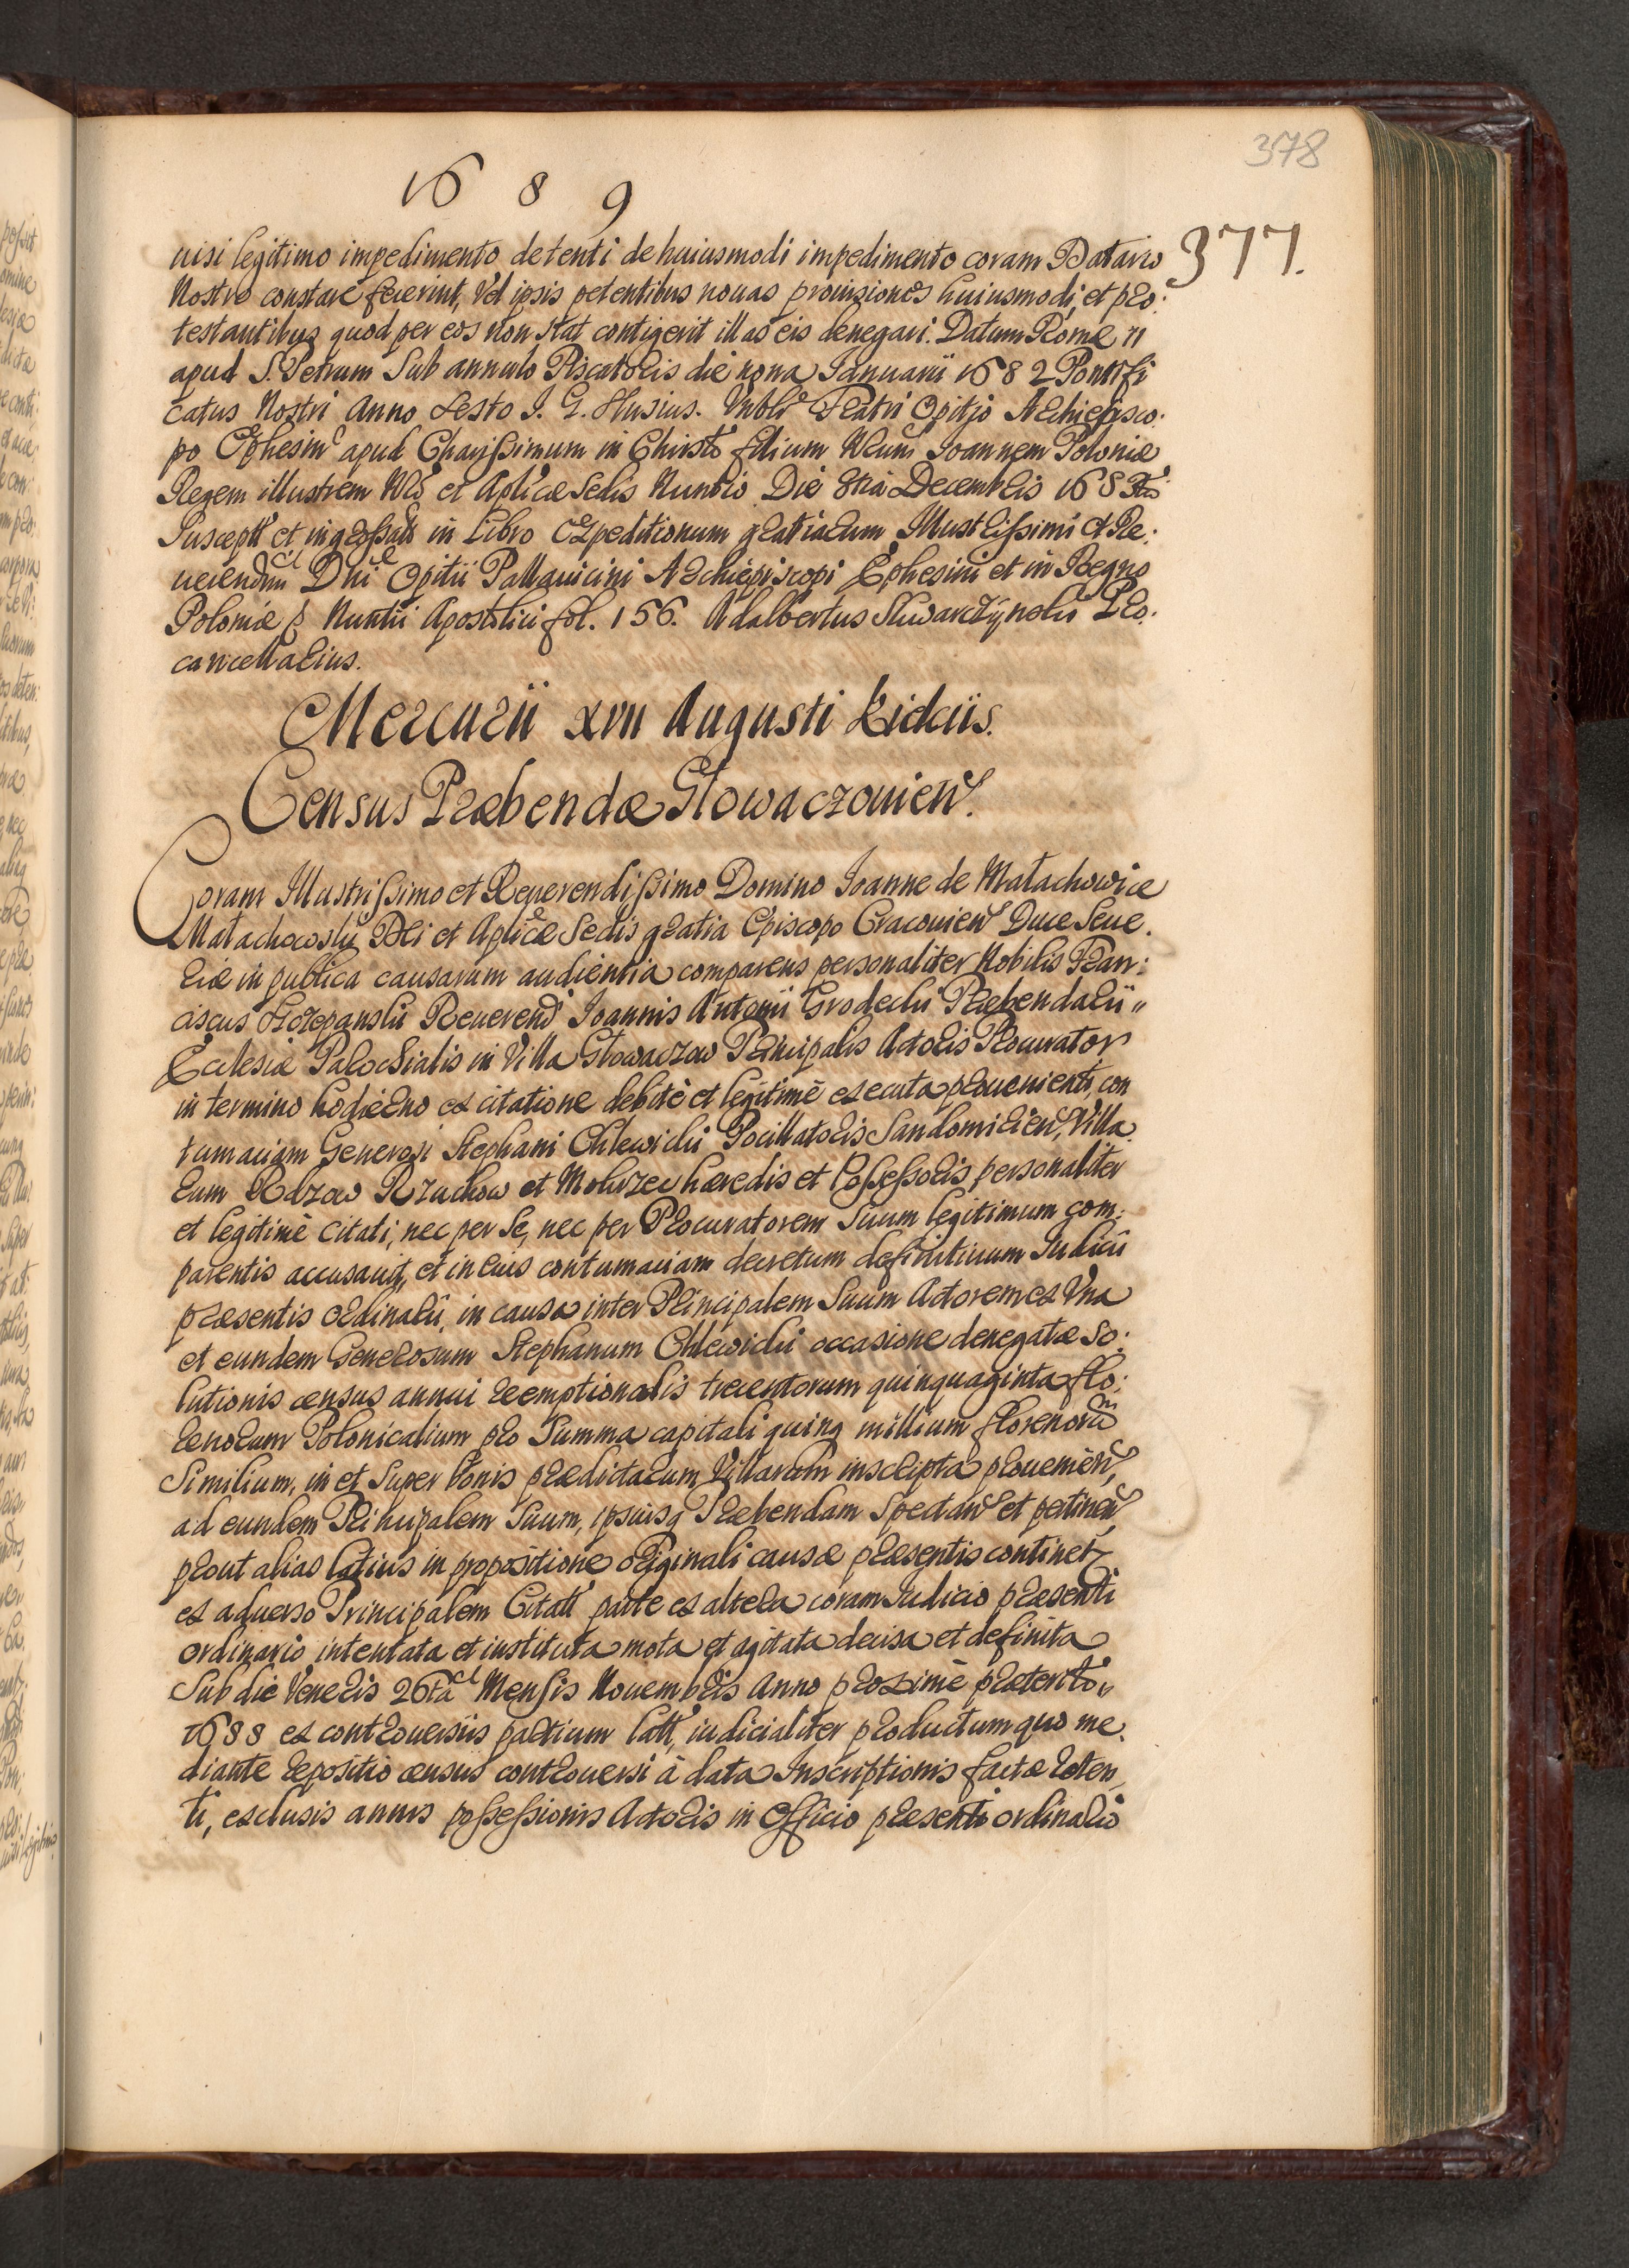 378
1689
377.
nisi legitimo impedimento detenti de huiusmodi impedimento coram Datario
Nostro constare fecerint, Vel ipsis petentibus nouas prouisiones huiusmodi, et pro:
testantibus quod per eos non stat contigerit illas eis denegari. Datum Romæ
apud S. Petrum Sub annulo Piscatoris die nona Januarii 1682 Pontifi
catus Nostri Anno Sexto J. G. Slusius. Vnbli Fratri Opitio Archiepisco:
po Ephesin apud Charissimum in Christo filium Nrum Joannem Poloniæ
Regem illustrem Nrõ et Aplicæ Sedis Nuntio Die 8tia Decembris 168
Suscept et ingrossatt in Libro Expeditionum gratiarum Illustrissimi et Re:
uerendmi Dni Opitii Pallauicini Archiepiscopi Ephesini et in Regno
Poloniæ Nuntii Apostolici fol. 156. Adalbertus Skwarczynski Pro:
cancellarius.
Mercurii XVII Augusti Kielciis.
Census Præbendæ Głowaczouien.
Coram Illustrissimo et Reuerendissimo Domino Joanne de Małachowice
Małachowski Dei et Aplicæ Sedis gratia Episcopo Cracouien Duce Seue:
riæ in publica causarum audientia comparens personaliter Nobilis Fran:
ciscus Szczepanski Reuerendi Joannis Antonii Grodecki Præbendarii
Ecclesiæ Parochialis in Villa Głowaczow Principalis Actoris Procurator
in termino hodierno ex citatione debitè et legitimè executa prouenienti, con
tumaciam Generosi Stephani Chlewicki Pocillatoris Sandomirien, Villa
rum Rdzow Rzuchow et Mokrzec hæredis et Possessoris personaliter
et legitimè citati, nec per Se, nec per Procuratorem Suum legitimum com:
parentis accusauit, et in eius contumaciam decretum definitiuum Iudicii
præsentis ordinarii, in causa inter Principalem Suum Actorem ex Vna
et eundem Generosum Stephanum Chlewicki occasione denegatæ so:
lutionis census annui reemptionalis trecentorum quinquaginta flo:
renorum Polonicalium pro Summa capitali quinq millium florenorum
Similium, in et Super bonis prædictarum Villarum inscripta prouenien,
ad eundem Principalem Suum, ipsiusq Præbendam Spectan et pertinen,
prout alias latius in propositione originali causæ præsentis continet
ex aduerso Principalem Citatt parte ex altera coram Iudicio præsenti
ordinario intentata et instituta mota et agitata decisa et definita
Sub die Veneris 26ta Mensis Nouembris Anno proximè præterito
1688 ex controuersiis partium latt, iudicialiter productum quo me:
diante repositio census controuersi à data Inscriptionis factæ reten
ti, exclusis annis possessionis Actoris in Officio præsenti ordinario